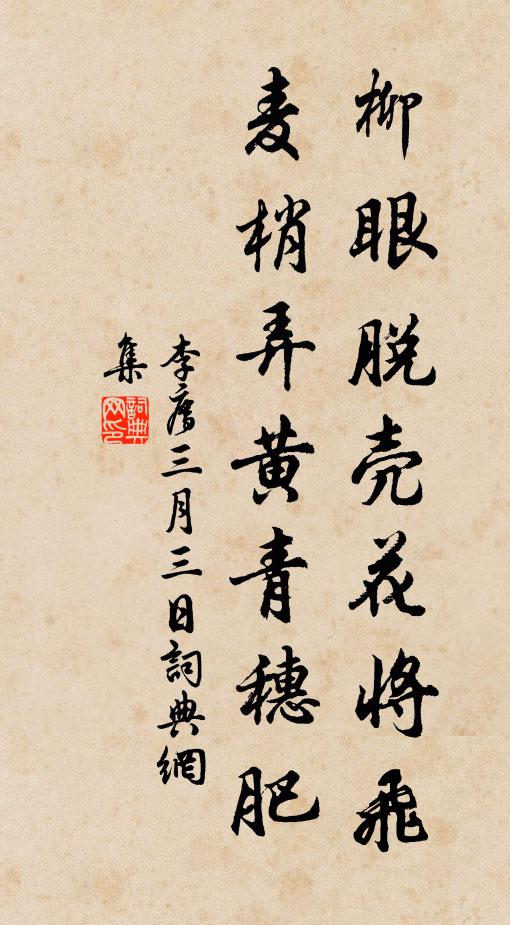 柳眼脱壳花将飛
麦梢弄黄青穗肥
李廌三月三日詞典網
集
詞典网印